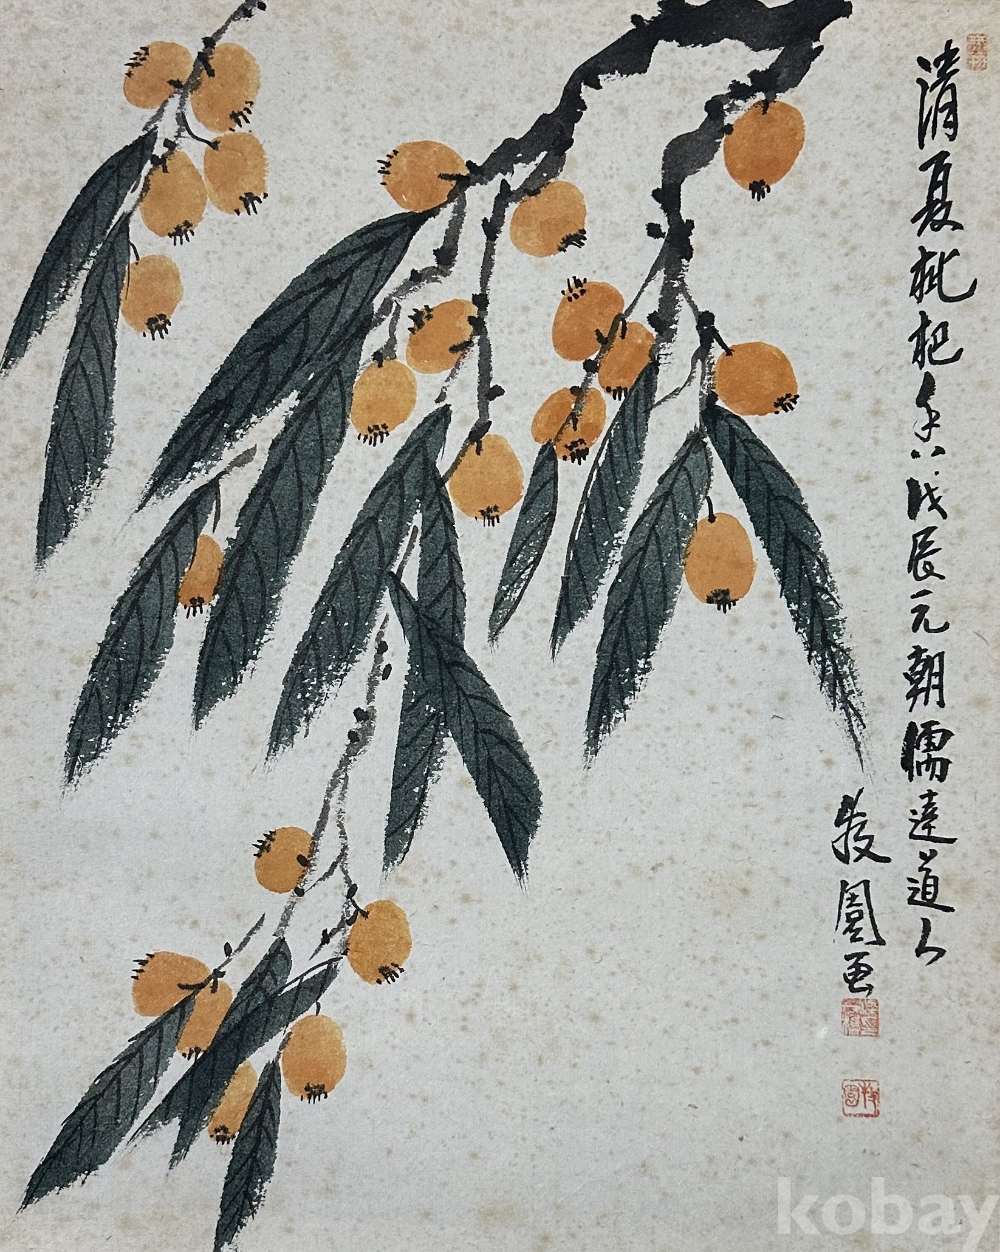 清夏枇杷香戊辰元朝儒達道人
園画
kobay